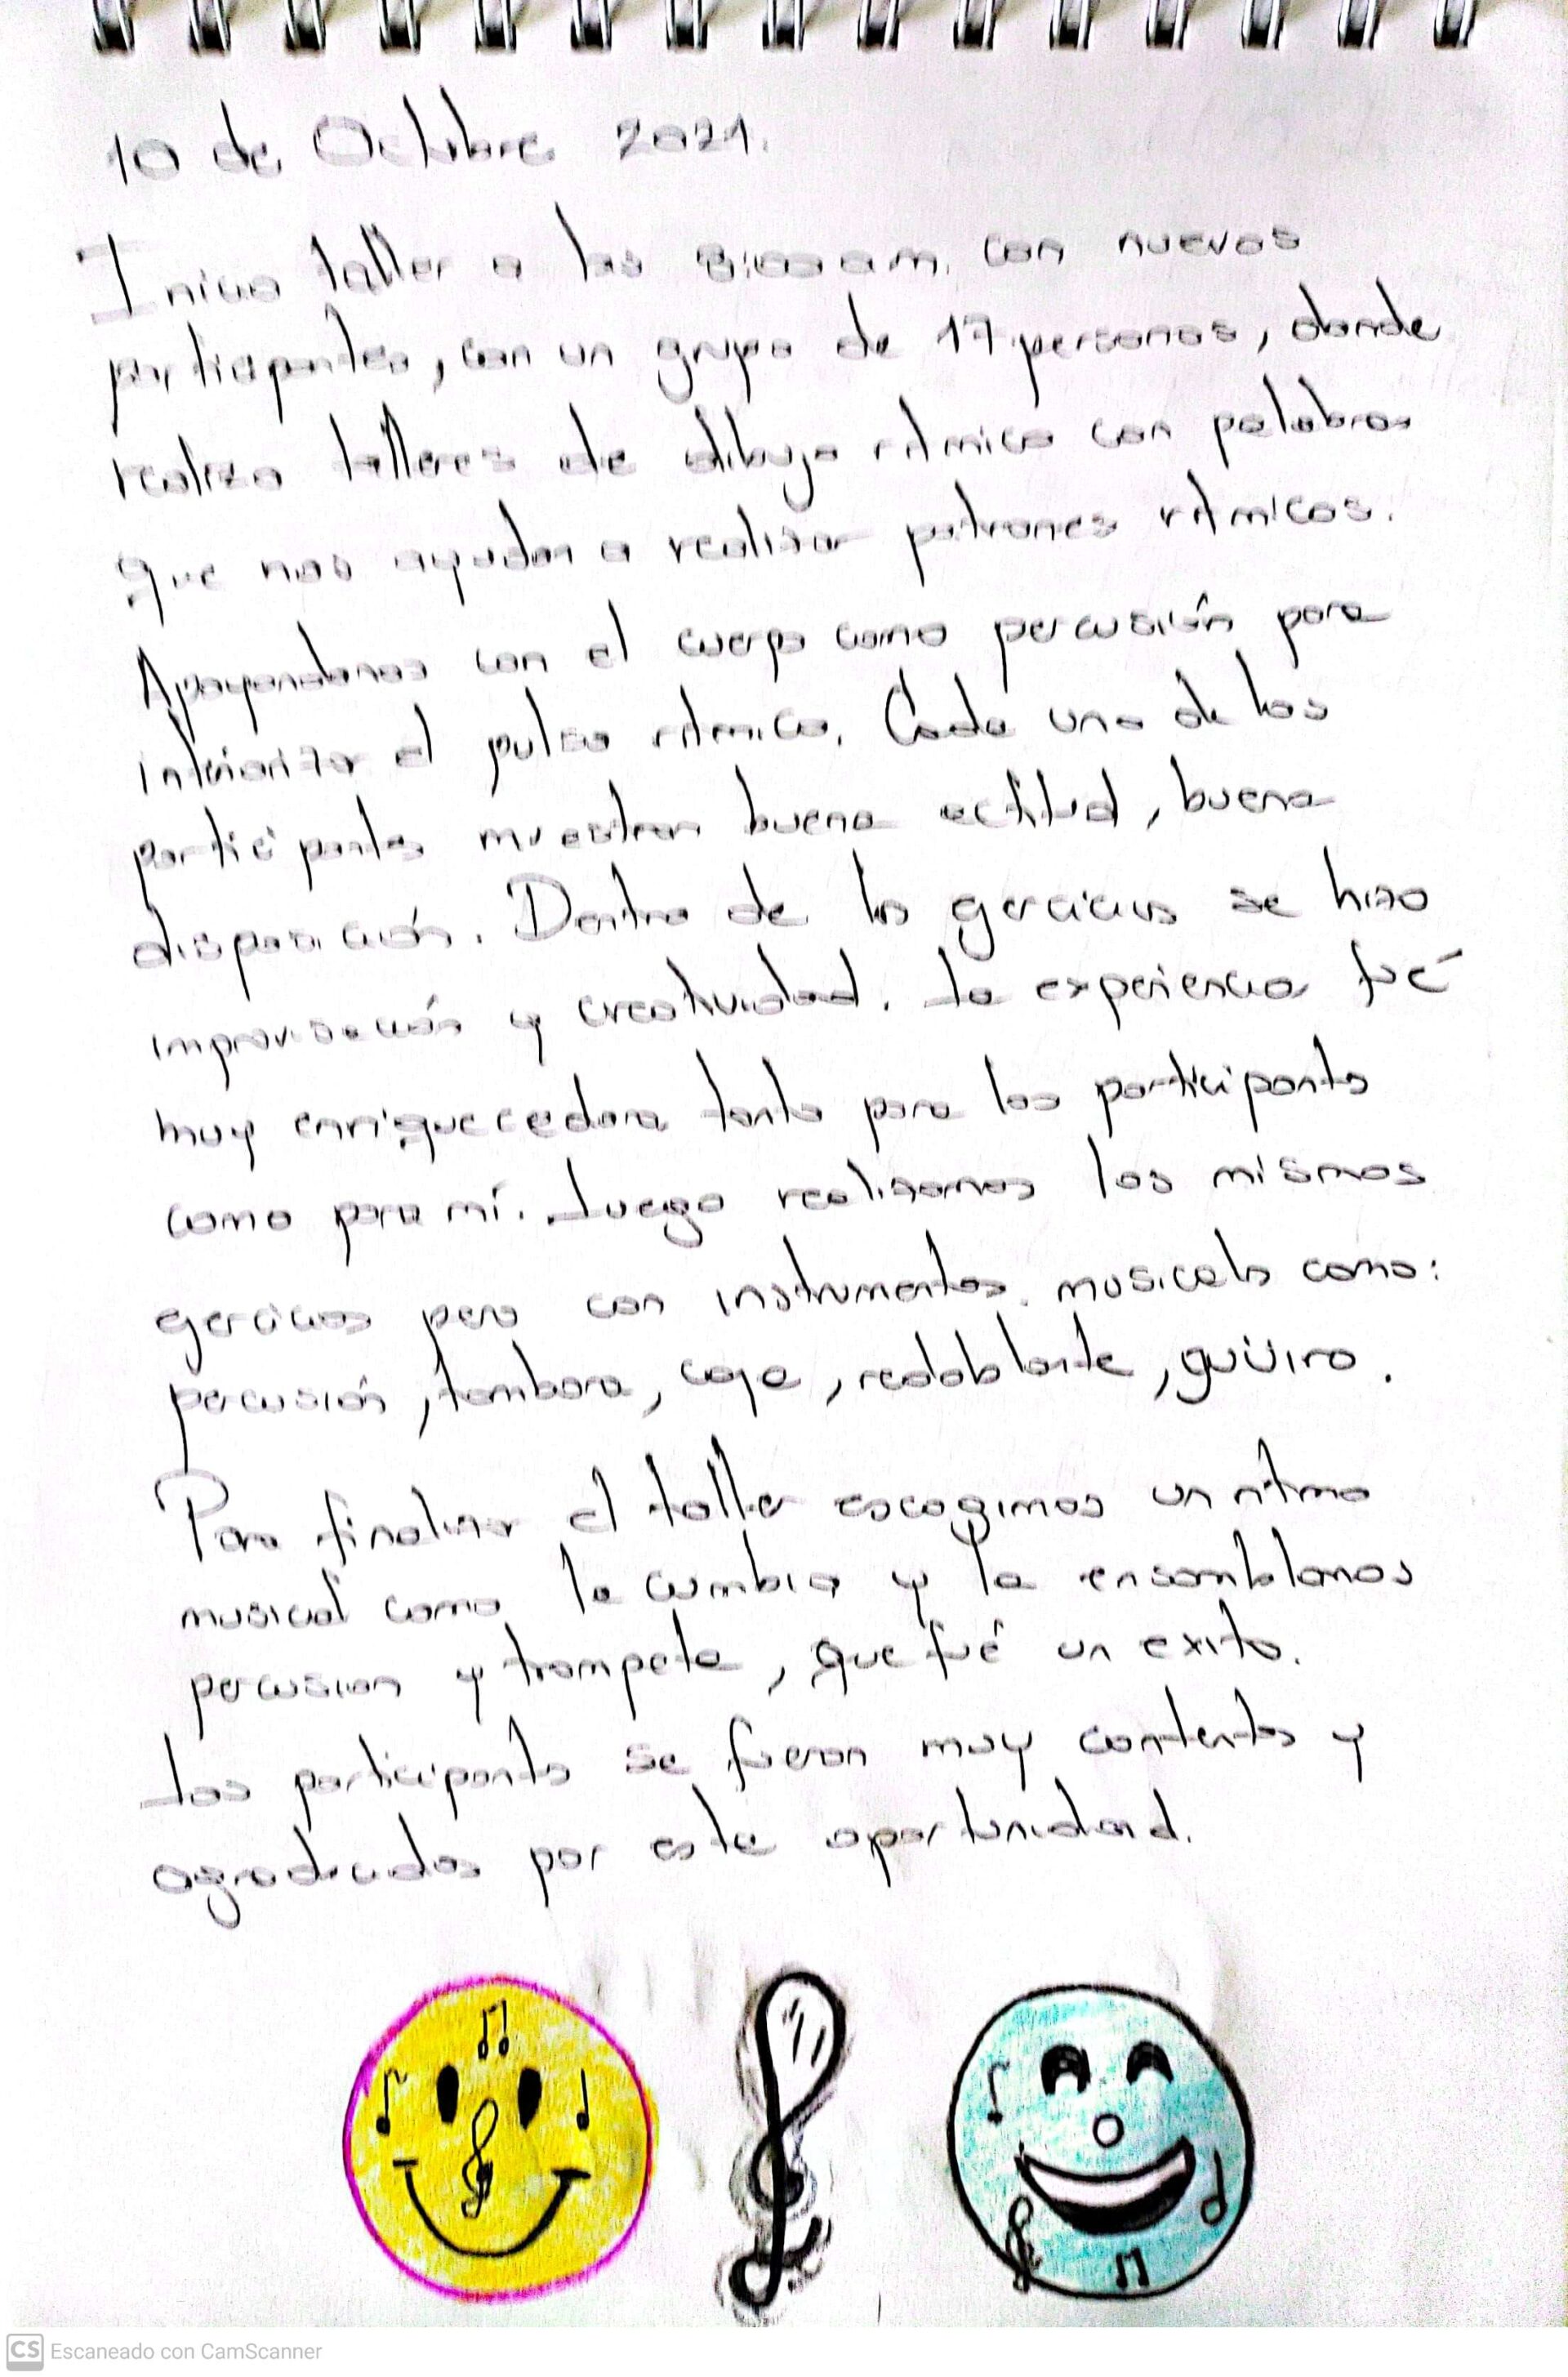 10 de Octubre 2021.
Inicio taller a las 8:00 a m. con nuevos
participantes, con un grupo de 17 personas, donde
realizo talleres de dibujo ritmico con palabras
que nos ayudan a realizar patrones ritmicos.
Apoyandonos con el cuerpo como percusión para
interiorizar el pulso ritmico. Cada uno de los
participantes muestran buena actitud, buena
disposición. Dentro de los ejercicios se hizo
improvisación y creatividad. La experiencia fué
muy enriquecedora tanto para los participantes
como para mí. Luego realizamos los mismos
ejercicios pero con instrumentos musicales como:
percusión, tambora, caja, redoblante, güiro.
Para finalizar el taller escogimos un ritmo
musical como la cumbia y la ensamblamos
percusion y trompeta, que fué un exito.
Los participantes se fueron muy contentos y
agradecidos por esta oportunidad.
CS Escaneado con CamScanner